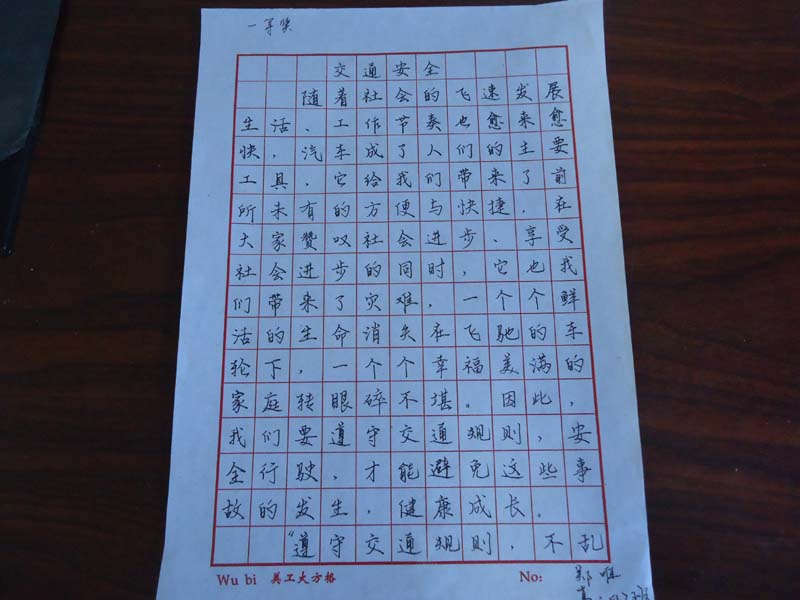 一等奖
交通安全
随着社会的飞速发展
生活、工作节奏也愈来愈
快，汽车成了人们的主要
工具，它给我们带来了前
所未有的方便与快捷，在
大家赞叹社会进步、享受
社会进步的同时，它也我
们带来了灾难，一个个鲜
活的生命消失在飞驰的车
轮下，一个个幸福美满的
家庭转眼碎不堪。因此，
我们要遵守交通规则，安
全行驶，才能避免这些事
故的发生，健康成长。
“遵守交通规则，不乱
Wu bi 美工大方格 No: 郑唯